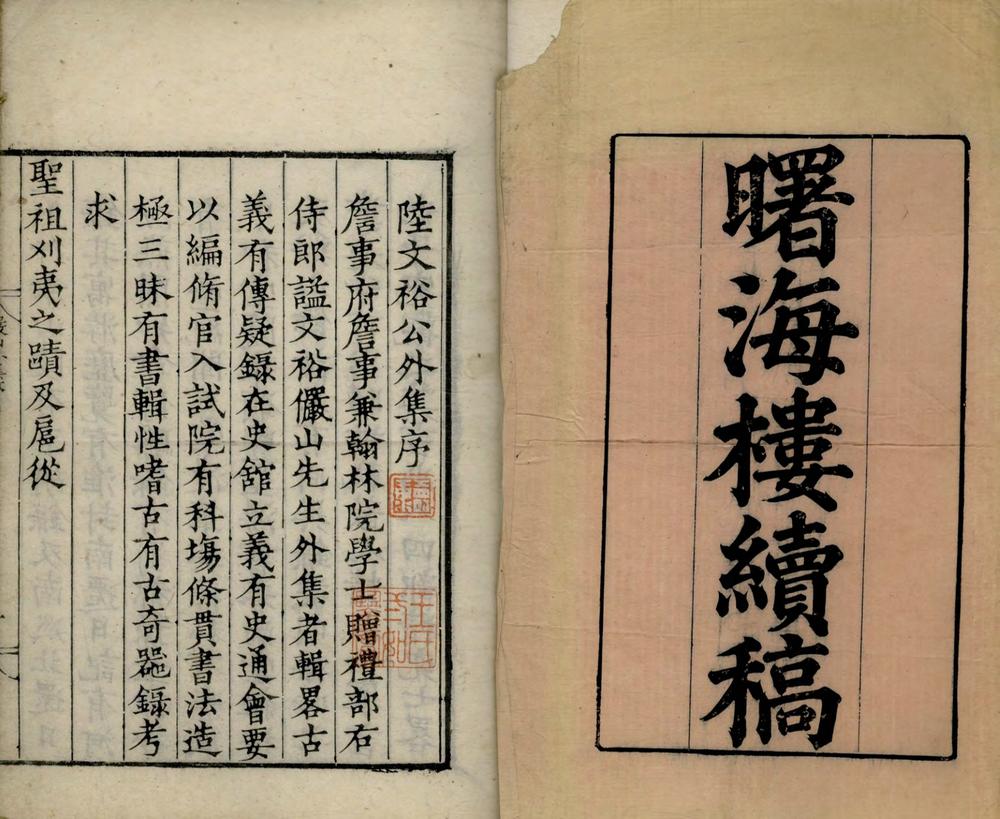 曙海樓續稿
陸文裕公外集序
詹事府詹事兼翰林院學士贈禮部右
侍郎謚文裕儼山先生外集者輯畧古
義有傳疑錄在史舘立義有史通會要
以編脩官入試院有科塲條貫書法造
極三昧有書輯性嗜古有古奇噐錄考
求
聖祖刈夷之蹟及扈從